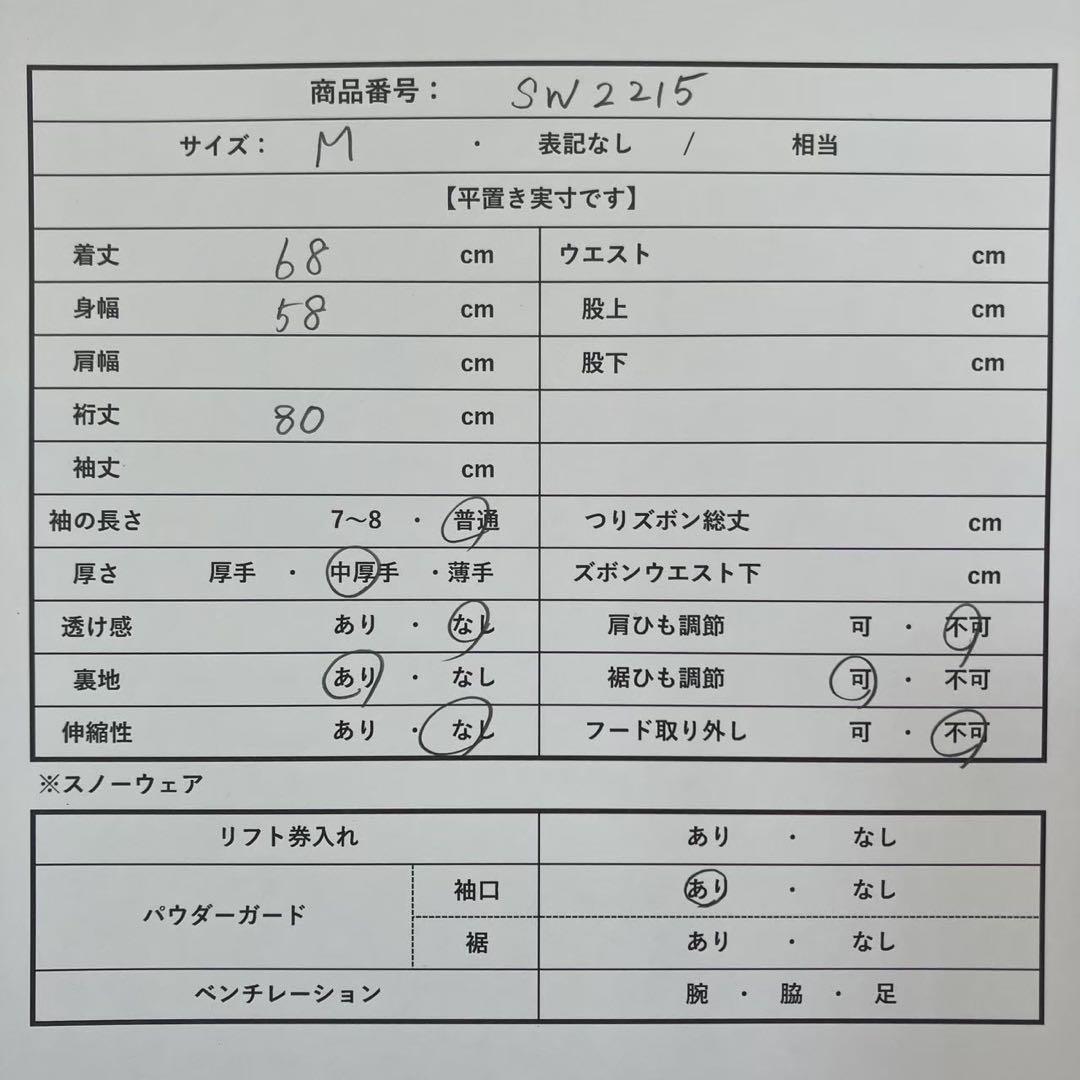 商品番号： SW2215
サイズ： M ・ 表記なし / 相当
【平置き実寸です】
着丈 68 cm ウエスト cm
身幅 58 cm 股上 cm
肩幅 cm 股下 cm
裄丈 80 cm
袖丈 cm
袖の長さ 7～8 ・ 普通 つりズボン総丈 cm
厚さ 厚手 ・ 中厚手 ・薄手 ズボンウエスト下 cm
透け感 あり ・ なし 肩ひも調節 可 ・ 不可
裏地 あり ・ なし 裾ひも調節 可 ・ 不可
伸縮性 あり ・ なし フード取り外し 可 ・ 不可
※スノーウェア
リフト券入れ あり ・ なし
パウダーガード 袖口 あり ・ なし
裾 あり ・ なし
ベンチレーション 腕 ・ 脇 ・ 足